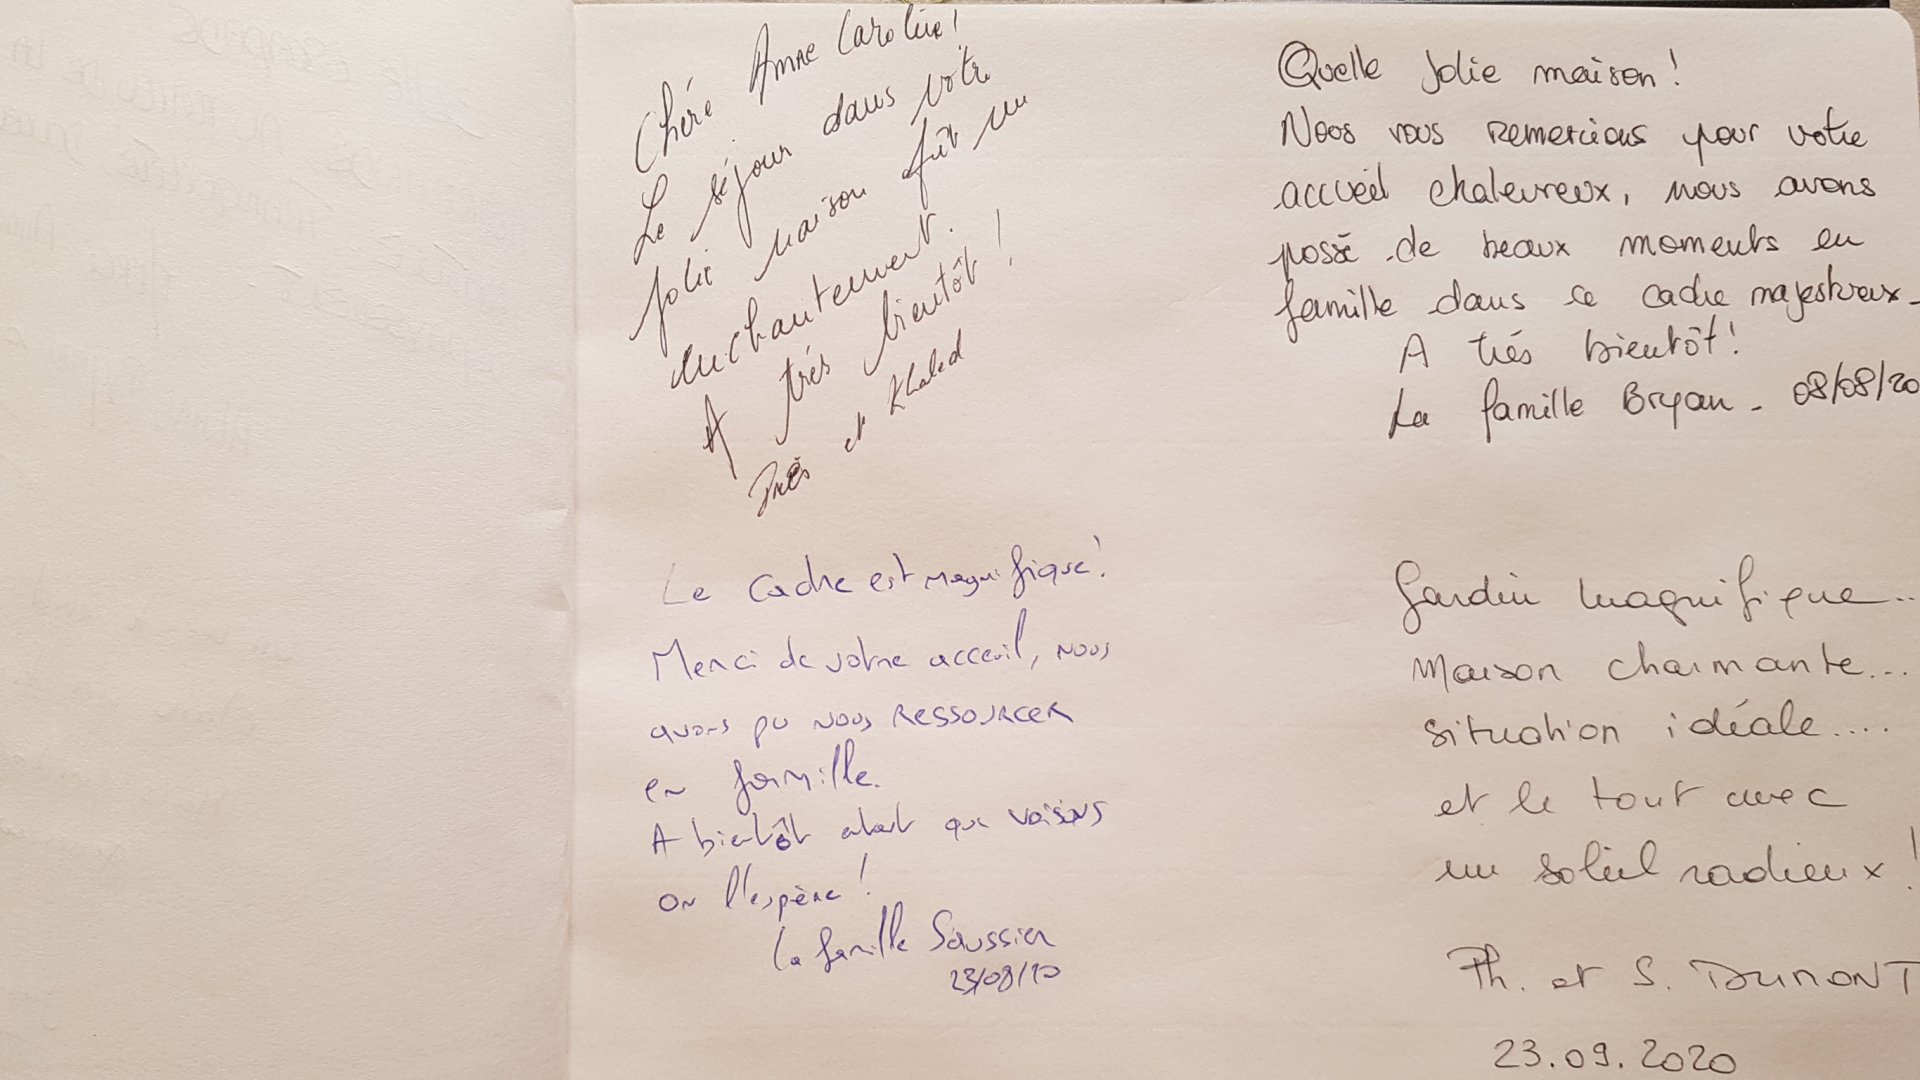 Chére Anne Caroline!
Le séjour dans votre
jolie maison fût un
enchantement.
A très bientôt !
et Khaled
Quelle Jolie maison !
Nous vous remercions pour votre
accueil chaleureux, nous avons
passé de beaux moments en
famille dans ce cadre majestueux -
A très bientôt !
La famille Bryan - 08/08/20
Le cadre est magnifique !
Merci de votre acceuil, nous
avons pu nous RESSOURCER
en famille.
A bientôt que voisins
on l'espère !
La famille Saussier
23/08/20
Jardin magnifique..
Maison charmante...
situation idéale....
et le tout avec
un soleil radieux !
Ph. et S. DUMONT
23.09.2020